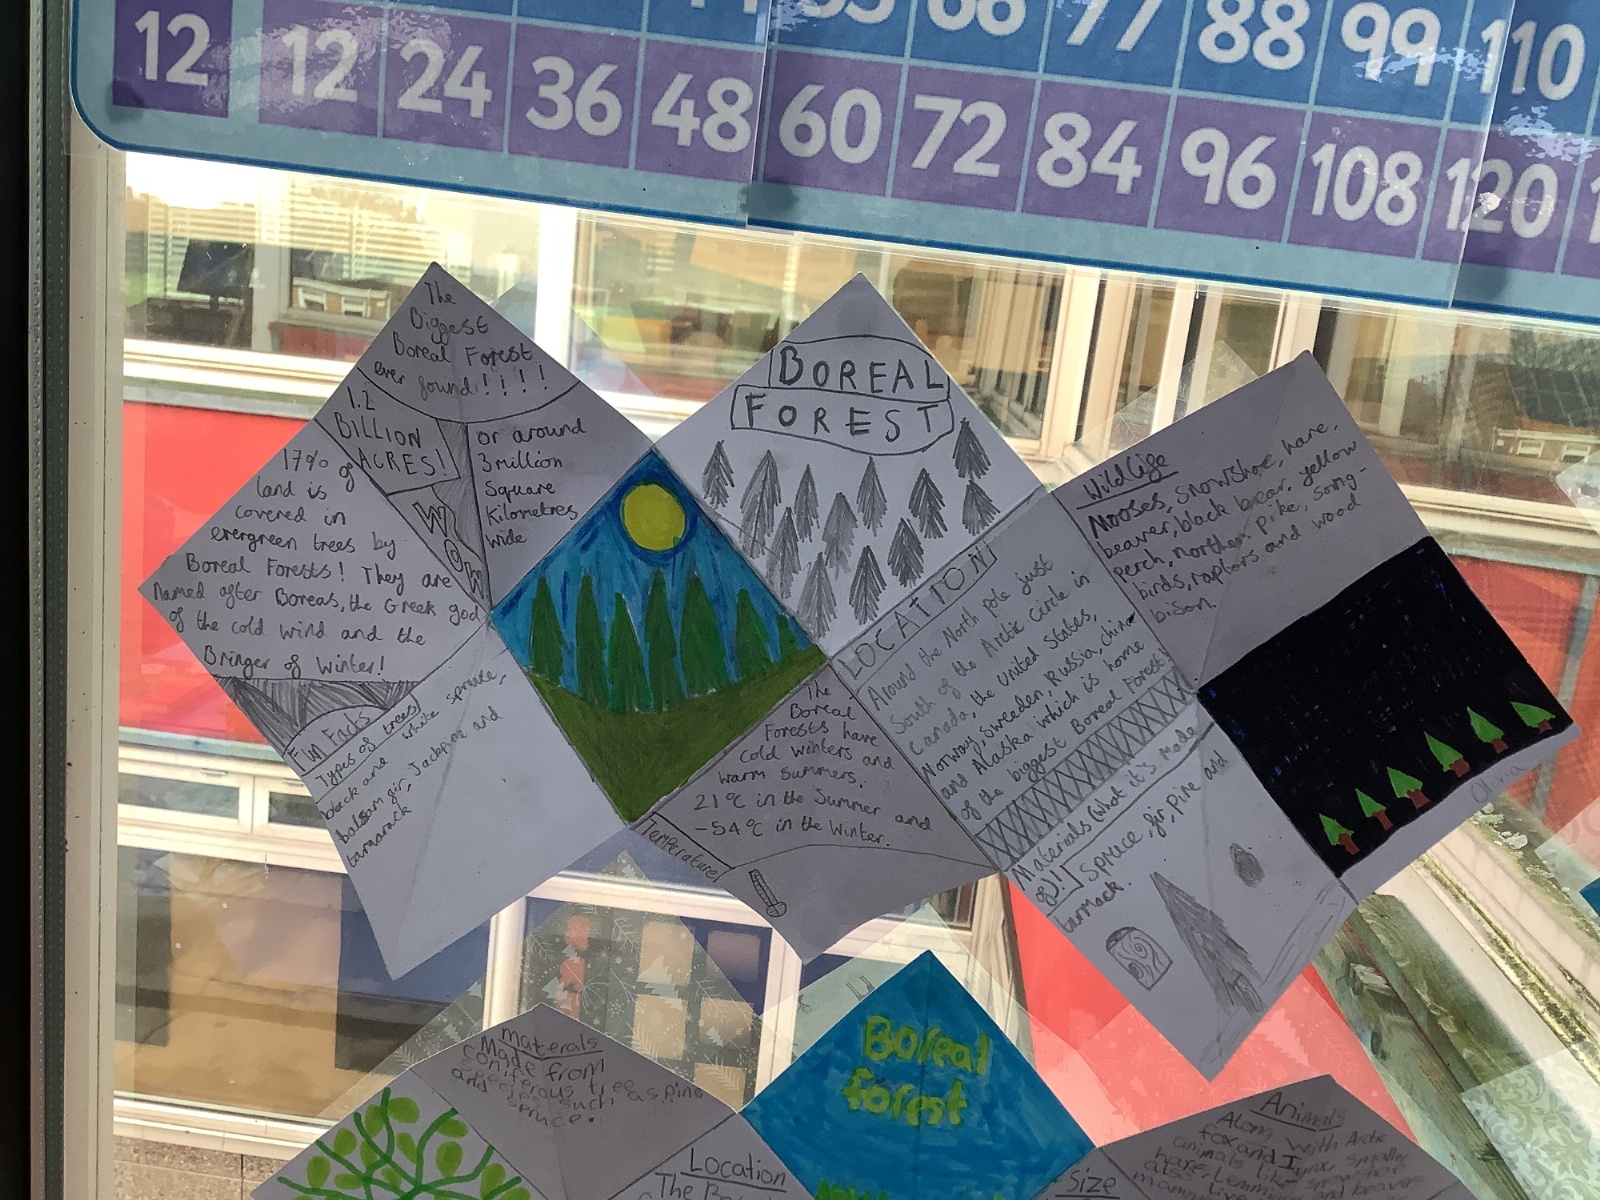 77 88 99 110
12 12 24 36 48 60 72 84 96 108 120
The
Biggest
Boreal Forest
ever found!!!!
1.2
BILLION
ACRES!
WOW
or around
3 million
Square
Kilometres
wide
17% of
land is
covered in
evergreen trees by
Boreal Forests! They are
Named after Boreas, the Greek god
of the cold wind and the
Bringer of Winter!
Fun Facts
Types of trees!
black and white spruce,
balsam fir, Jackpine and
tamarack
BOREAL
FOREST
The
Boreal
Forests have
cold winters and
warm summers.
21°C in the Summer and
-54°C in the Winter.
Temperature
LOCATION
Around the North pole just
South of the Arctic Circle in
Canada, the United States,
Norway, Sweeden, Russia, china
and Alaska which is home
of the biggest Boreal Forest!
Materials (what it's made
of)! Spruce, fir, pine and
tarmack.
Wildlife
Mooses, snowshoe, hare,
beaver, black bear, yellow
perch, northern pike, song-
birds, raptors and wood
bison.
Olivia
materals
Made from
coniferous trees
species such as pine
and spruce.
Boreal
forest
Location
The Bo
Size
Animals
Along with Arctic
fox and lynx, smaller
animals like snowshoe
hare, lemmings and beavers
also live